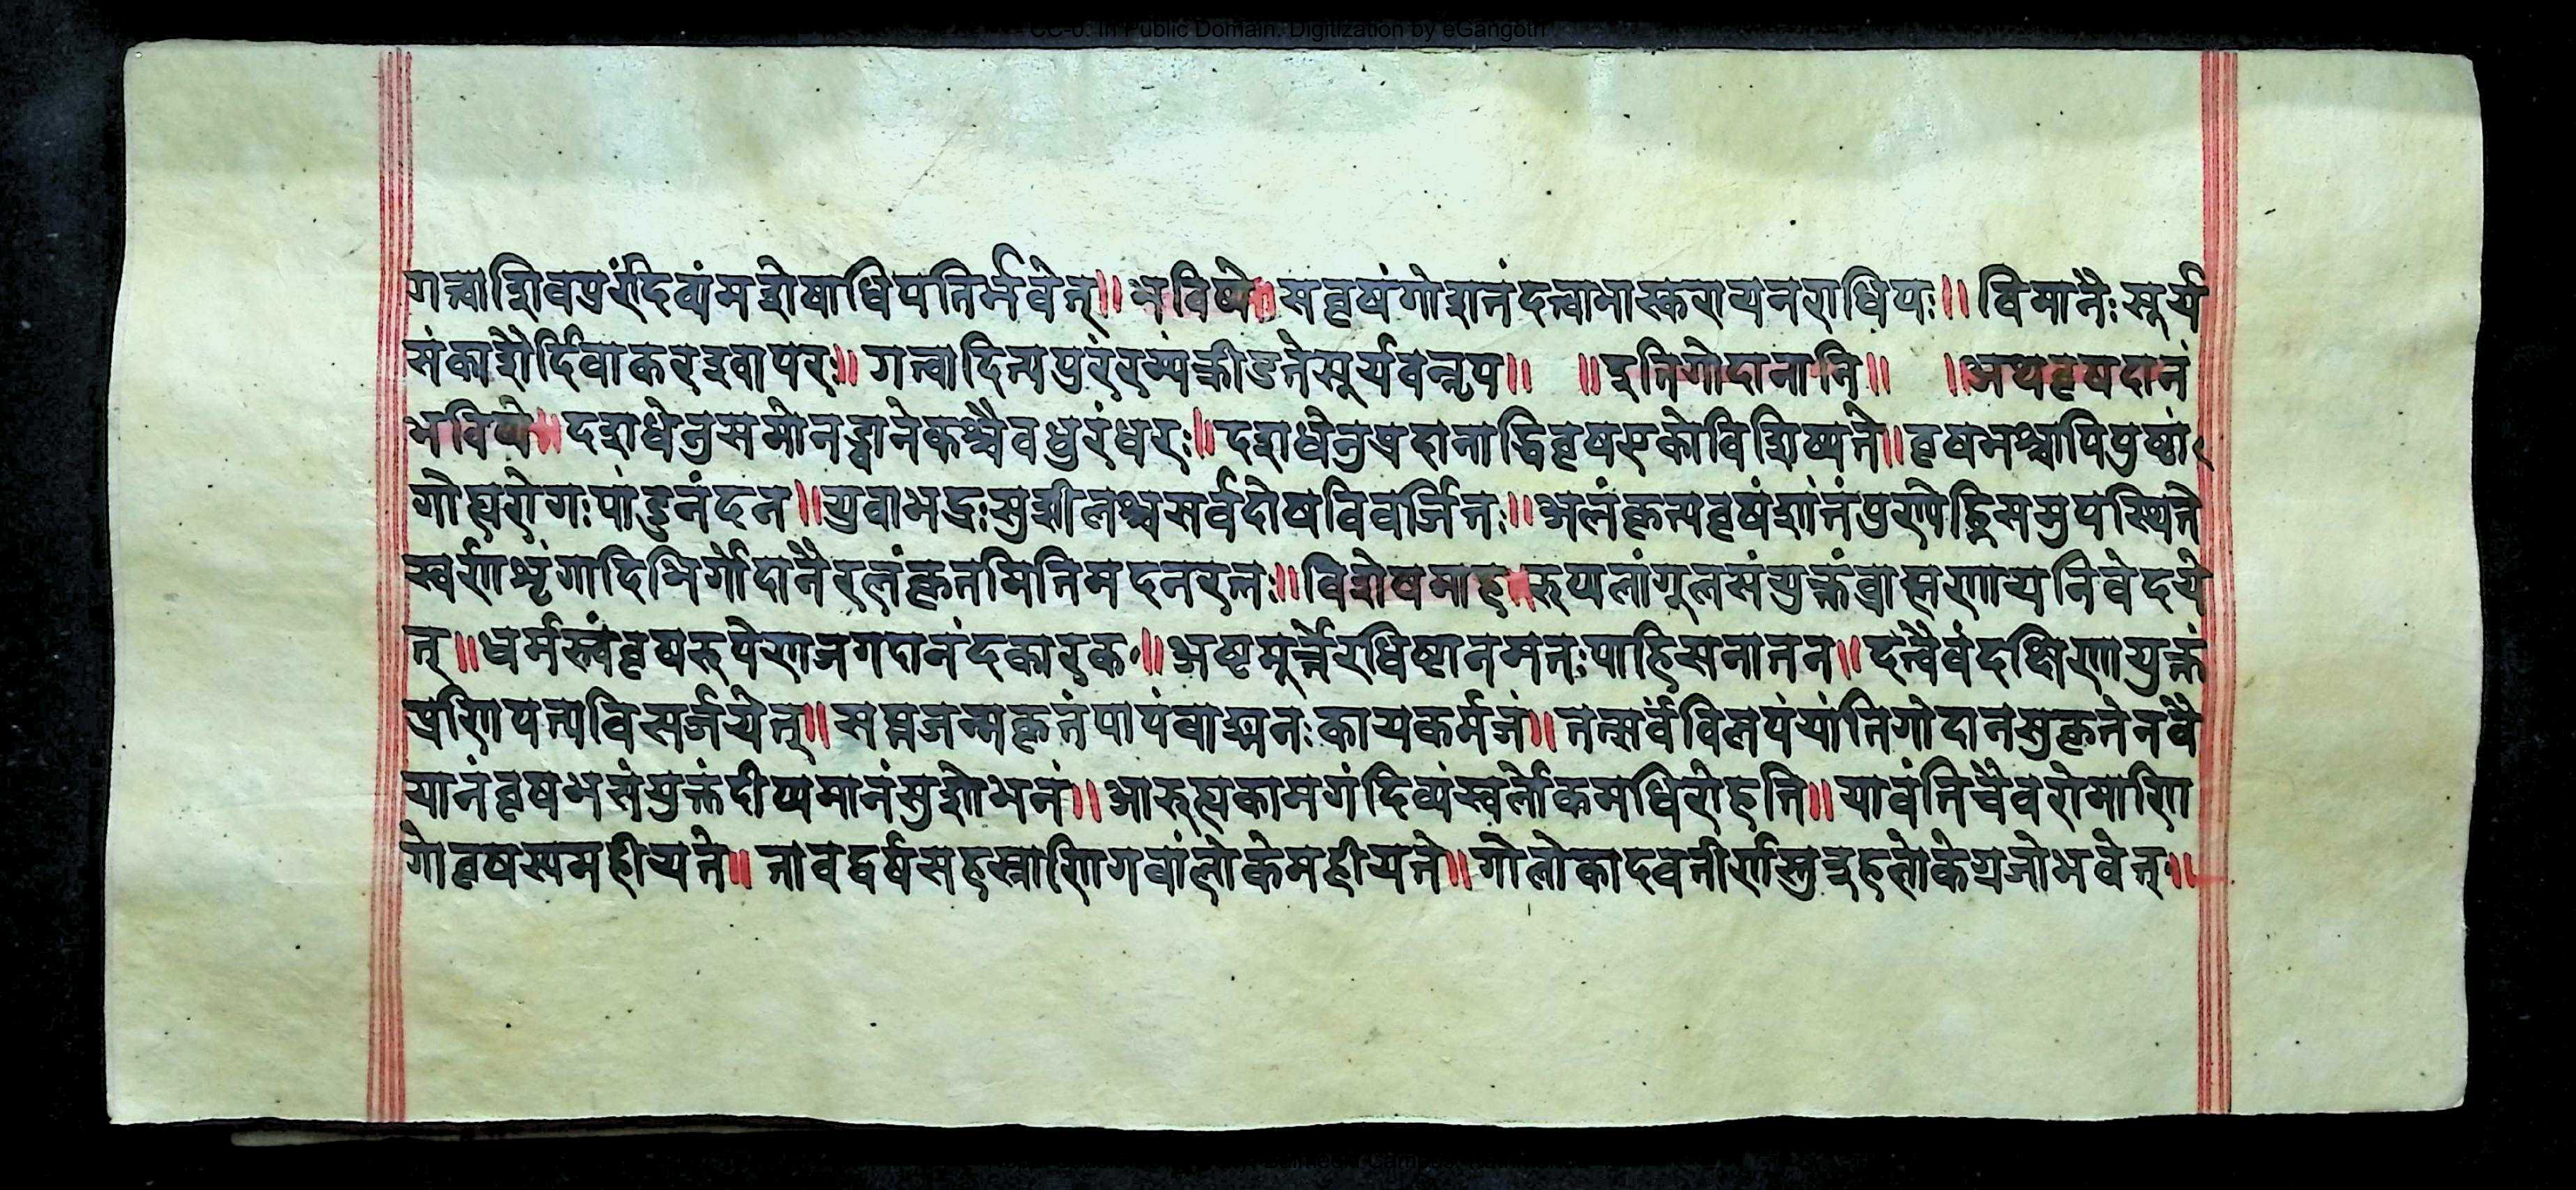 CC-0. In Public Domain. Digitization by eGangotri
गत्वाशिवपुरंदिव्यंमशेषाधिपतिर्भवेत्॥ भविष्ये॥ सवृषंगोशतंदत्वाभास्करायनराधिपः॥ विमानैःसूर्य
संकाशैर्दिवाकरइवापरः॥ गत्वादित्यपुरंरम्यंक्रीडतेसूर्यवन्नृप॥ ॥इतिगोदानानि॥ ॥अथवृषदानं
भविष्ये॥ दशधेनुसमोनड्वानेकश्चैवधुरंधरः॥ दशधेनुप्रदानाद्धिवृषएकोविशिष्यते॥ वृषभश्चापिपुष्टां
गोह्यरोगःपांडुनंदन॥ युवाभद्रःसुशीलश्चसर्वदोषविवर्जितः॥ अलंकृत्यवृषंशांतंपुण्येह्निसमुपस्थिते
स्वर्णशृंगादिभिर्गोदानैरलंकृतमितिमदनरत्नः॥ विशेषमाह॥ रुप्यलांगूलसंयुक्तंब्राह्मणायनिवेदये
त्॥ धर्मस्त्वंवृषरुपेणजगदानंदकारक॥ अष्टमूर्त्तेरधिष्टानमतःपाहिसनातन॥ दत्वैवंदक्षिणायुक्तं
प्रणिपत्यविसर्जयेत्॥ सप्तजन्मकृतंपापंवाङ्मनःकायकर्मजं॥ तत्सर्वंविलयंयांतिगोदानसुकृतेनवै
यानंवृषभसंयुक्तंदीप्यमानंसुशोभनं॥ आरुह्यकामगंदिव्यंस्वर्लोकमधिरोहति॥ यावंतिचैवरोमाणि
गोवृषस्यमहीयते॥ तावद्वर्षसहस्राणिगवांलोकेमहीयते॥ गोलोकादवतीर्णस्तुइहलोकेग्रजोभवेत्॥